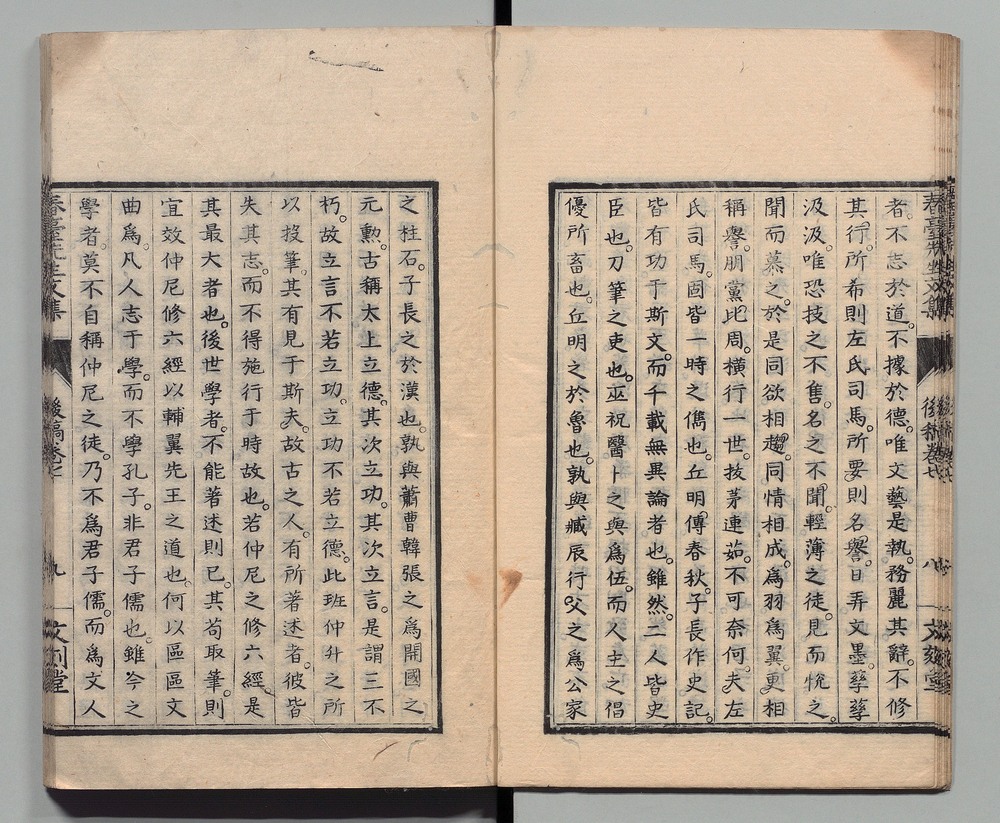 者。不志於道。不據於德。唯文藝是執。務麗其辭。不修
其行。所希則左氏司馬。所要則名譽。日弄文墨。孳孳
汲汲。唯恐技之不售。名之不聞。輕薄之徒。見而悅之。
聞而慕之。於是同欲相趨。同情相成。為羽為翼。更相
稱譽。朋黨比周。橫行一世。拔茅連茹。不可奈何。夫左
氏司馬。固皆一時之儁也。丘明傳春秋。子長作史記。
皆有功于斯文。而千載無異論者也。雖然。二人皆史
臣也。刀筆之吏也。巫祝醫卜之與為伍。而人主之倡
優所畜也。丘明之於魯也。孰與臧辰行父之為公家
之柱石。子長之於漢也。孰與蕭曹韓張之為開國之
元勲。古稱太上立德。其次立功。其次立言。是謂三不
朽。故立言不若立功。立功不若立德。此班仲升之所
以投筆。其有見于斯夫。故古之人。有所著述者。彼皆
失其志。而不得施行于時故也。若仲尼之修六經。是
其最大者也。後世學者。不能著述則已。其苟取筆。則
宜效仲尼修六經以輔翼先王之道也。何以區區文
曲為。凡人志于學。而不學孔子。非君子儒也。雖今之
學者。莫不自稱仲尼之徒。乃不為君子儒。而為文人
春臺先生文集
後稿卷七
八
春臺先生文集
後稿卷七
九